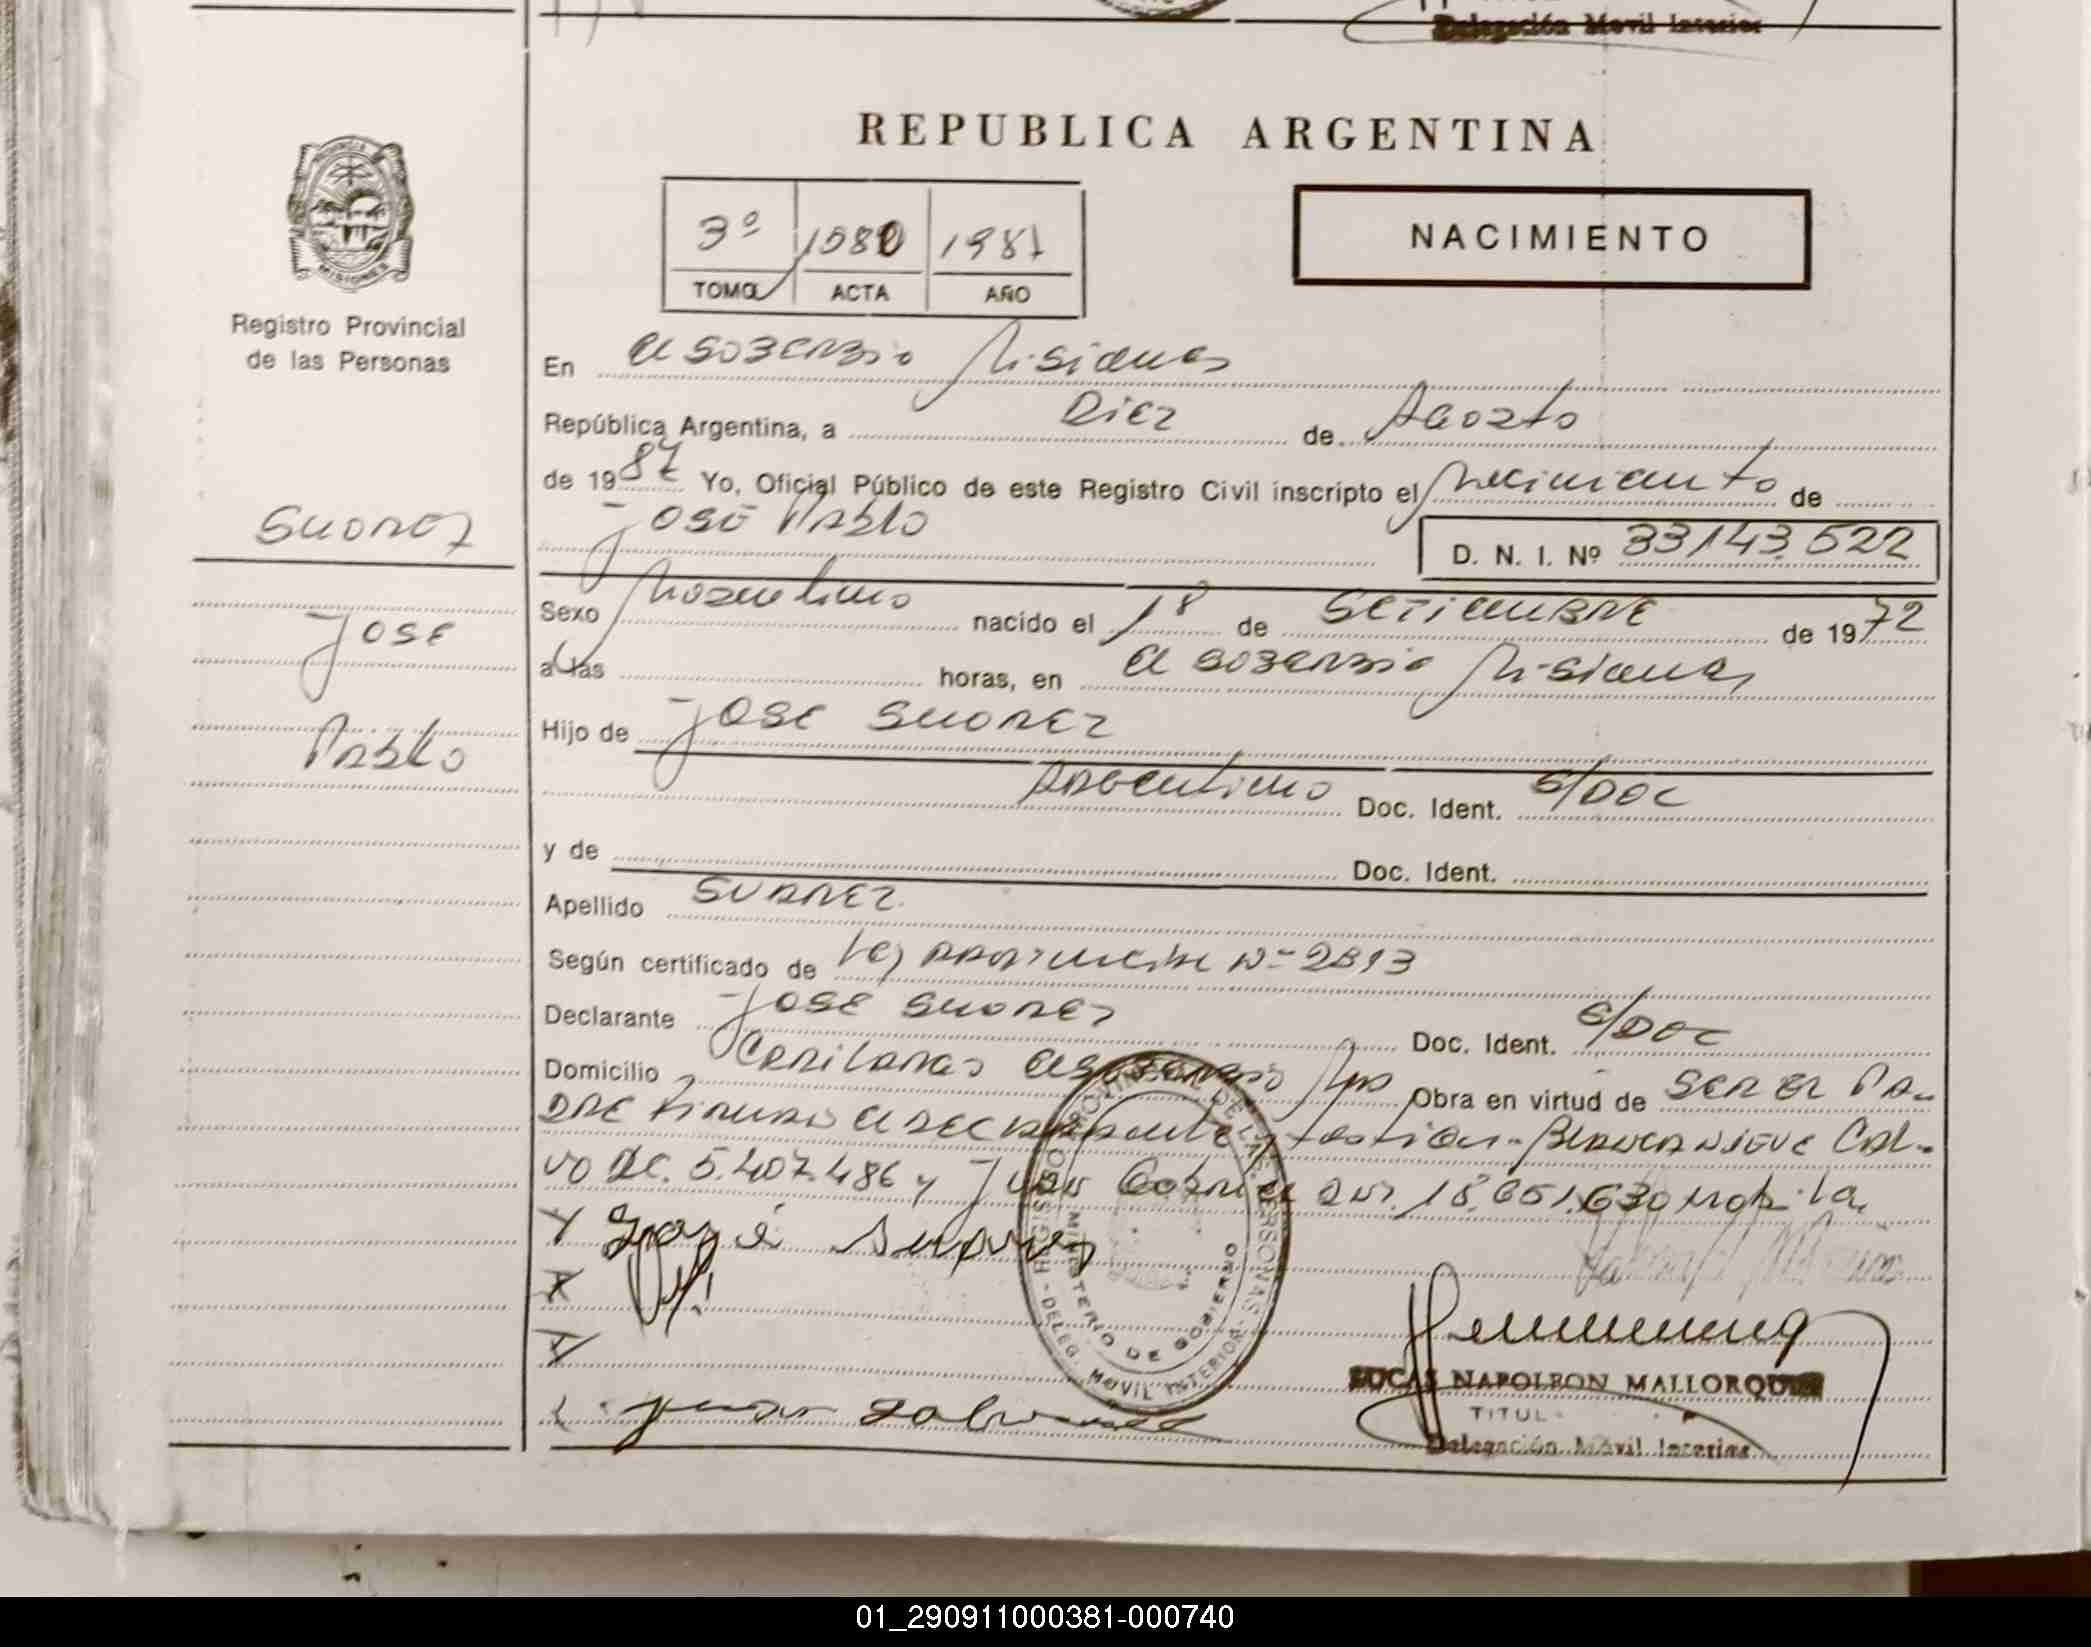 Delegación Movil Interior
REPUBLICA ARGENTINA
3º 1580 1987
TOMO ACTA AÑO
NACIMIENTO
PROVINCIA
MISIONES
Registro Provincial
de las Personas
En El Soberbio Misiones
República Argentina, a Diez de Agosto
de 1987 Yo, Oficial Público de este Registro Civil inscripto el Nacimiento de
José Pablo
D. N. I. Nº 33.143.522
Suarez
José
Pablo
Sexo Masculino nacido el 18 de Setiembre de 1972
a las horas, en El Soberbio Misiones
Hijo de José Suarez
Argentino Doc. Ident. S/Doc
y de Doc. Ident.
Apellido Suarez
Según certificado de Ley Nº 2813
Declarante José Suarez Doc. Ident. S/Doc
Domicilio El Soberbio Mns Obra en virtud de ser el Pa-
dre Firman el declarante y testigos Blanca Nieve Cal-
vo DC. 5.407.486 y Juan DNI. 18.651.630
José Suarez
REGISTRO PROVINCIAL DE LAS PERSONAS
MINISTERIO DE GOBIERNO
DELEG. MOVIL INTERIOR
LUCAS NAPOLEON MALLORQUIN
TITUL
Delegación Móvil Interior
01_290911000381-000740